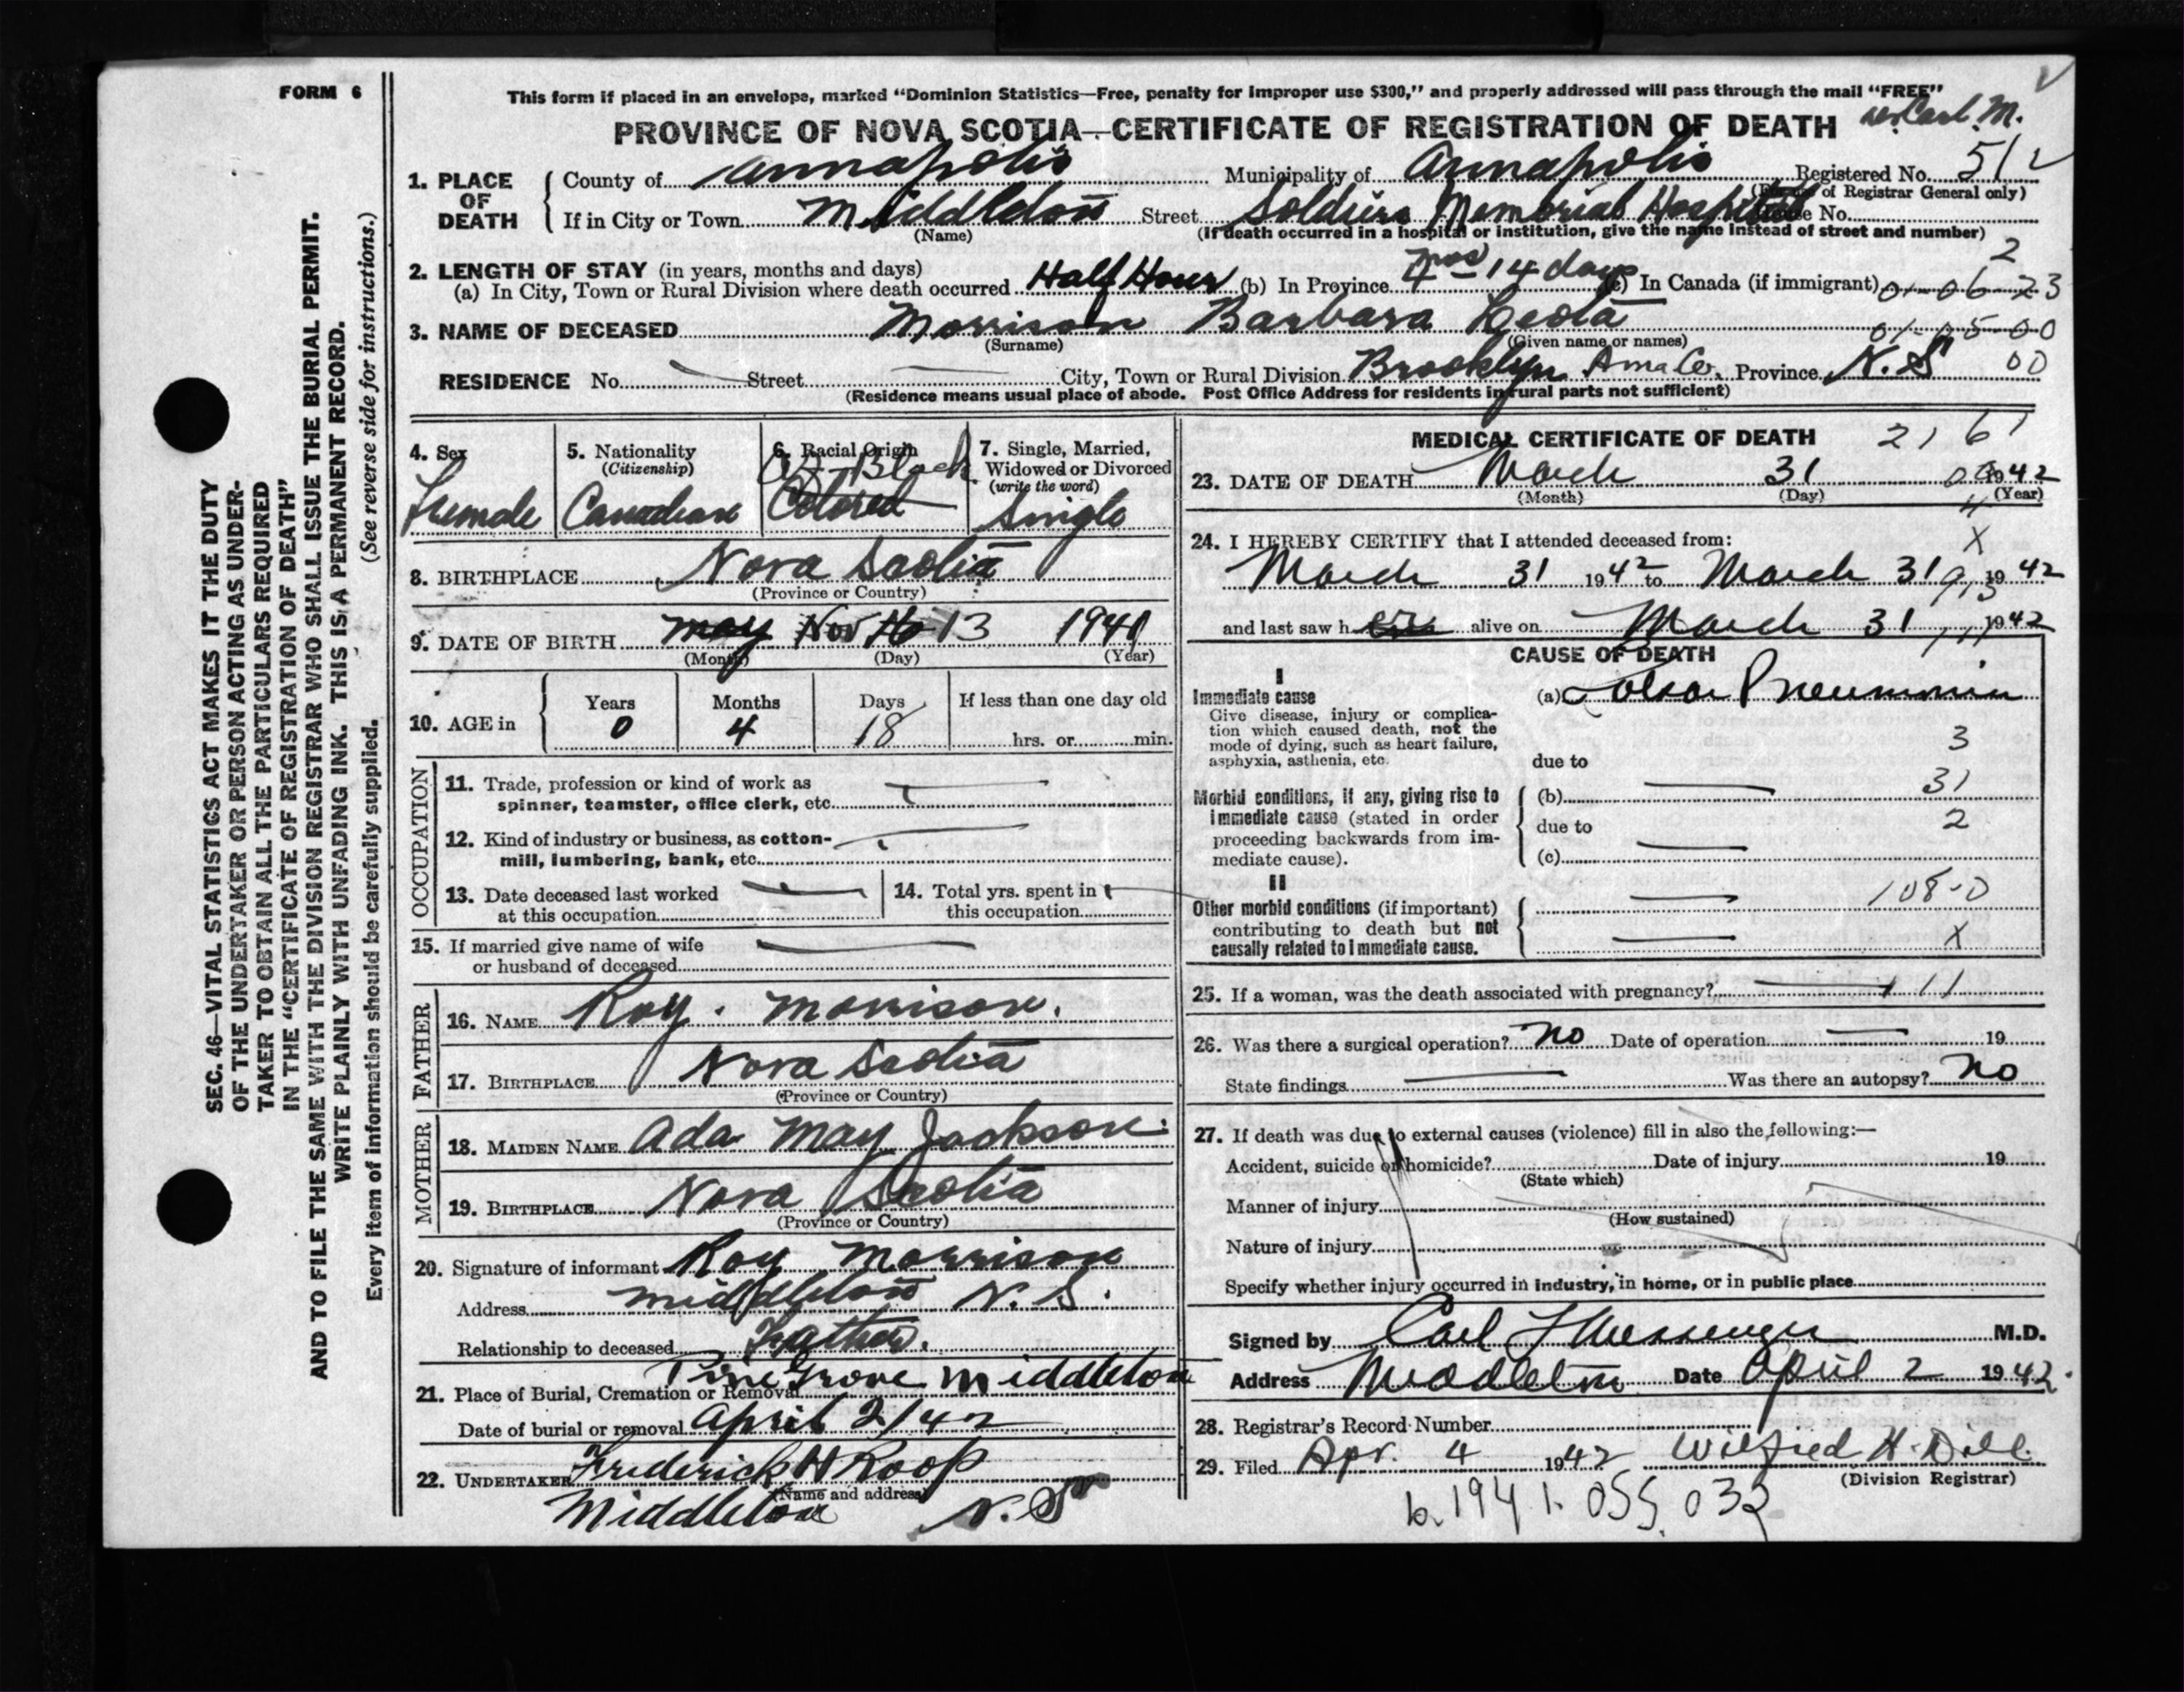 FORM 6
This form if placed in an envelope, marked “Dominion Statistics—Free, penalty for improper use $300,” and properly addressed will pass through the mail “FREE”
PROVINCE OF NOVA SCOTIA—CERTIFICATE OF REGISTRATION OF DEATH
Carl M.
1. PLACE OF DEATH County of Annapolis Municipality of Annapolis Registered No. 512
( of Registrar General only)
If in City or Town Middleton Street Soldiers Memorial Hospital No.
(Name) (If death occurred in a hospital or institution, give the name instead of street and number)
2
2. LENGTH OF STAY (in years, months and days)
(a) In City, Town or Rural Division where death occurred Half Hour (b) In Province 4 mos 14 days (c) In Canada (if immigrant) 01-06-23
3. NAME OF DECEASED Morrison Barbara Leota 01-05-00
(Surname) (Given name or names)
RESIDENCE No. Street City, Town or Rural Division Brooklyn Anna Co. Province N.S 00
(Residence means usual place of abode. Post Office Address for residents in rural parts not sufficient)
4. Sex Female
5. Nationality (Citizenship) Canadian
6. Racial Origin Black Colored
7. Single, Married, Widowed or Divorced (write the word) Single
8. BIRTHPLACE Nova Scotia
(Province or Country)
9. DATE OF BIRTH May Nov 16 13 1941
(Month) (Day) (Year)
10. AGE in Years 0 Months 4 Days 18 If less than one day old
hrs. or min.
OCCUPATION
11. Trade, profession or kind of work as spinner, teamster, office clerk, etc.
12. Kind of industry or business, as cotton-mill, lumbering, bank, etc.
13. Date deceased last worked at this occupation
14. Total yrs. spent in this occupation
15. If married give name of wife or husband of deceased
FATHER
16. NAME Roy Morrison.
17. BIRTHPLACE Nova Scotia
(Province or Country)
MOTHER
18. MAIDEN NAME Ada May Jackson
19. BIRTHPLACE Nova Scotia
(Province or Country)
20. Signature of informant Roy Morrison
Address Middleton N.S.
Relationship to deceased Father.
21. Place of Burial, Cremation or Removal Pine Grove Middleton
Date of burial or removal April 2/42
22. UNDERTAKER Frederick H Roop
(Name and address)
Middleton N.S
MEDICAL CERTIFICATE OF DEATH 21 61
23. DATE OF DEATH March 31 1942
(Month) (Day) (Year)
4
X
24. I HEREBY CERTIFY that I attended deceased from:
March 31 1942 to March 31 1942
and last saw h alive on March 31 1942
CAUSE OF DEATH
I
Immediate cause (a) Lobar Pneumonia
Give disease, injury or complication which caused death, not the mode of dying, such as heart failure, asphyxia, asthenia, etc.
3
due to
Morbid conditions, if any, giving rise to immediate cause (stated in order proceeding backwards from immediate cause).
(b) 31
due to 2
(c)
II
Other morbid conditions (if important) contributing to death but not causally related to immediate cause.
108-0
X
25. If a woman, was the death associated with pregnancy? 111
26. Was there a surgical operation? No Date of operation 19
State findings Was there an autopsy? No
27. If death was due to external causes (violence) fill in also the following:—
Accident, suicide or homicide? Date of injury 19
(State which)
Manner of injury
(How sustained)
Nature of injury
Specify whether injury occurred in industry, in home, or in public place
Signed by Carl Messenger M.D.
Address Middleton Date April 2 1942.
28. Registrar's Record Number
29. Filed Apr. 4 1942 Wilfred H. Dill.
(Division Registrar)
b. 1941. 055. 032
SEC. 46—VITAL STATISTICS ACT MAKES IT THE DUTY
OF THE UNDERTAKER OR PERSON ACTING AS UNDER-
TAKER TO OBTAIN ALL THE PARTICULARS REQUIRED
IN THE “CERTIFICATE OF REGISTRATION OF DEATH”
AND TO FILE THE SAME WITH THE DIVISION REGISTRAR WHO SHALL ISSUE THE BURIAL PERMIT.
WRITE PLAINLY WITH UNFADING INK. THIS IS A PERMANENT RECORD.
Every item of information should be carefully supplied. (See reverse side for instructions.)